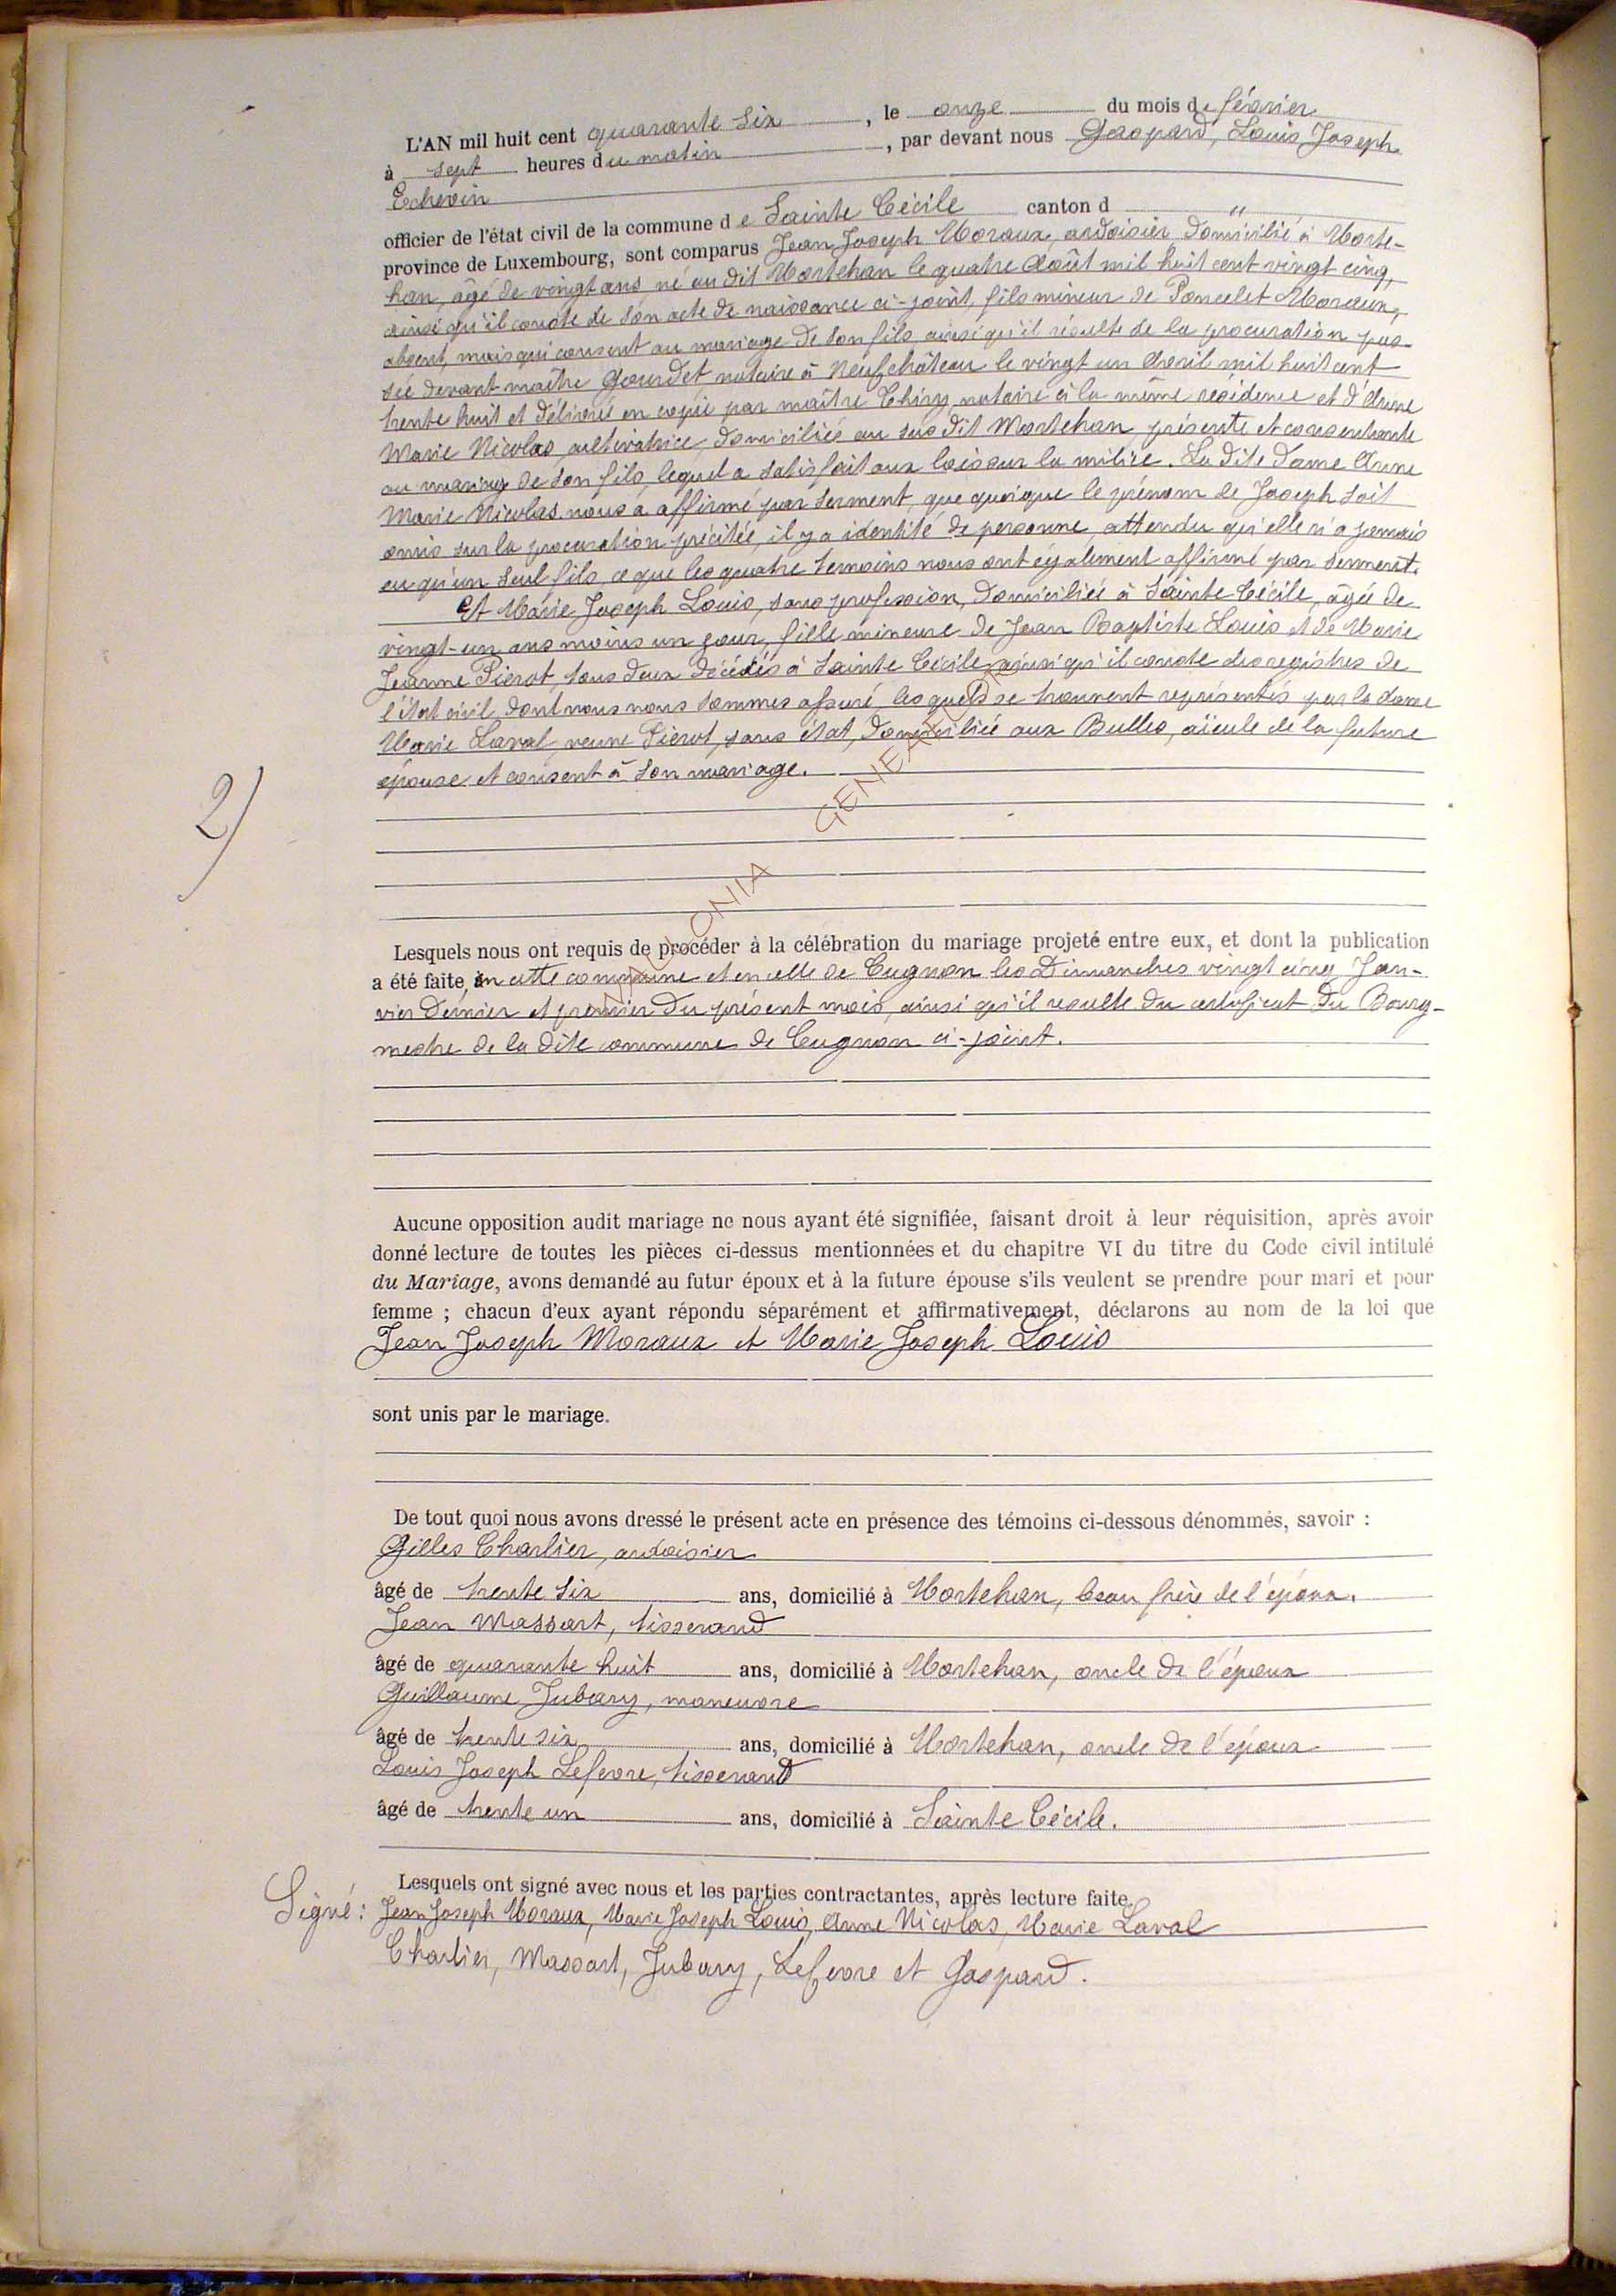 L'AN mil huit cent quarante six, le onze du mois de février
à sept heures du matin, par devant nous Gaspard, Louis Joseph
Echevin
officier de l'état civil de la commune de Sainte Cécile canton d "
province de Luxembourg, sont comparus Jean Joseph Moraux, ardoisier domicilié à Morte-
han, âgé de vingt ans, né au dit Mortehan le quatre Août mil huit cent vingt cinq,
ainsi qu'il conste de son acte de naissance ci-joint, fils mineur de Poncelet Moraux,
absent, mais qui consent au mariage de son fils, ainsi qu'il résulte de la procuration pas-
sée devant maître Gourdet notaire à Neufchâteau le vingt un Avril mil huit cent
trente huit et délivrée en copie par maître Thiry, notaire à la même résidence et d'Anne
Marie Nicolas, cultivatrice, domiciliée au sus dit Mortehan, présente et consentante
au mariag de son fils, lequel a satisfait aux lois sur la milice. La dite dame Anne
Marie Nicolas nous a affirmé par serment, que quoique le prénom de Joseph soit
omis sur la procuration précitée, il y a identité de personne, attendu qu'elle n'a jamais
eu qu'un seul fils, ce que les quatre témoins nous ont également affirmé par serment.
et Marie Joseph Louis, sans profession, domiciliée à Sainte Cécile, âgée de
vingt-un ans moins un jour, fille mineure de Jean Baptiste Louis et de Marie
Jeanne Pierot, tous deux décédés à Sainte Cécile, ainsi qu'il conste des registres de
l'état civil, dont nous nous sommes assuré, lesquels se trouvent représentés par la dame
Marie Laval, veuve Pierot, sans état, domiciliée aux Bulles, aïeule de la future
épouse et consent à son mariage.
2)
Lesquels nous ont requis de procéder à la célébration du mariage projeté entre eux, et dont la publication
a été faite, en cette commune et en celle de Cugnon les Dimanches vingt cinq Jan-
vier dernier et premier du présent mois, ainsi qu'il resulte du certificat du Bourg-
mestre de la dite commune de Cugnon ci-joint.
Aucune opposition audit mariage ne nous ayant été signifiée, faisant droit à leur réquisition, après avoir
donné lecture de toutes les pièces ci-dessus mentionnées et du chapitre VI du titre du Code civil intitulé
du Mariage, avons demandé au futur époux et à la future épouse s'ils veulent se prendre pour mari et pour
femme ; chacun d'eux ayant répondu séparément et affirmativement, déclarons au nom de la loi que
Jean Joseph Moraux et Marie Joseph Louis
sont unis par le mariage.
De tout quoi nous avons dressé le présent acte en présence des témoins ci-dessous dénommés, savoir :
Gilles Charlier, ardoisier
âgé de trente six ans, domicilié à Mortehan, beau frère de l'époux.
Jean Massart, tisserand
âgé de quarante huit ans, domicilié à Mortehan, oncle de l'époux
Guillaume Jubary, maneuvre
âgé de trente six ans, domicilié à Mortehan, oncle de l'époux
Louis Joseph Lefevre, tisserand
âgé de trente un ans, domicilié à Sainte Cécile.
Lesquels ont signé avec nous et les parties contractantes, après lecture faite.
Signé : Jean Joseph Moraux, Marie Joseph Louis, Anne Nicolas, Marie Laval
Charlier, Massart, Jubary, Lefevre et Gaspard.